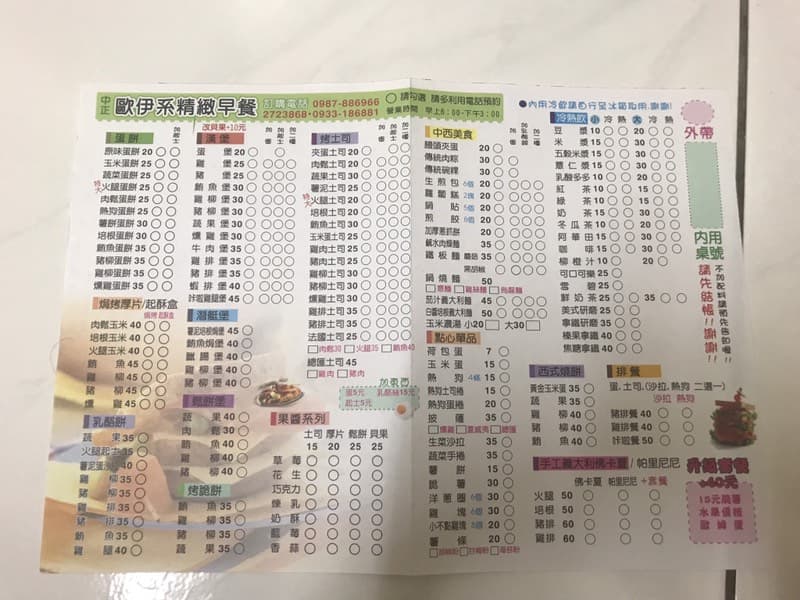 中正 歐伊系精緻早餐 訂購電話 0987-886966
2723868·0933-186881
請勾選 請多利用電話預約
營業時間 早上6:00-下午3:00
●內用冷飲請自行至冰箱取用,謝謝!
外帶
內用桌號
請先結帳!!謝謝!!
不加配料請預先告知喔!!
蛋餅
原味蛋餅 20
玉米蛋餅 25
蔬菜蛋餅 25
火腿蛋餅 25
肉鬆蛋餅 25
熱狗蛋餅 25
薯餅蛋餅 30
培根蛋餅 30
鮪魚蛋餅 35
豬柳蛋餅 35
雞柳蛋餅 35
燻雞蛋餅 35
改貝果+10元
漢堡
蛋堡 20
雞堡 25
豬堡 25
鮪魚堡 30
雞柳堡 30
豬柳堡 30
蔬果堡 30
燻雞堡 30
牛肉堡 35
雞排堡 35
豬排堡 35
蝦排堡 35
咔啦雞腿堡 45
烤土司
夾蛋土司 20
肉鬆土司 20
蔬果土司 30
薯泥土司 25
火腿土司 20
培根土司 25
鮪魚土司 30
玉米蛋土司 25
雞肉土司 25
豬肉土司 25
雞柳土司 30
豬柳土司 30
燻雞土司 30
雞排土司 35
豬排土司 35
法國土司 25
肉鬆30 火腿35 鮪魚40
總匯土司 45
雞肉 豬肉
加東西
蛋5元 乳酪絲15元
起士5元
焗烤厚片/起酥盒
焗烤 起酥盒
肉鬆玉米 40
培根玉米 40
火腿玉米 40
鮪魚 45
雞柳 45
豬柳 45
燻雞 45
潛艇堡
薯泥培根焗堡 45
鮪魚焗堡 40
臘腸堡 40
雞柳堡 40
豬柳堡 40
燻雞堡 40
鬆餅堡
蔬果 40
肉鬆 40
鮪魚 40
雞柳 40
豬柳 40
乳酪餅
蔬果 35
火腿起士 35
薯泥蛋沙拉 40
雞肉 35
豬肉 35
鮪魚 35
雞腿 40
烤跪餅
鮪魚 35
雞肉 35
豬肉 35
蔬果 35
果醬系列
土司 厚片 鬆餅 貝果
15 20 25 25
草莓
花生
巧克力
煉乳
奶酥
藍莓
香蒜
中西美食
饅頭夾蛋 20
傳統肉粽 30
傳統碗粿 30
生煎包 6個 20
蘿蔔糕 2塊 20
鍋貼 5個 20
煎餃 6個 20
加厚蔥抓餅 20
鹹水肉燥麵 35
鐵板麵 蘑菇 35
黑胡椒
鍋燒麵 50
意麵 雞絲麵 烏龍麵
茄汁義大利麵 45
白醬培根義大利麵 50
玉米濃湯 小20 大30
點心單品
荷包蛋 7
玉米蛋 15
熱狗 4條 15
熱狗土司捲 20
熱狗蛋捲 20
披薩 35
燻雞 夏威夷 總匯
生菜沙拉 35
蔬菜手捲 35
薯餅 15
脆薯 30
洋蔥圈 6個 30
雞塊 6個 30
小不點雞塊 30
薯條 20
胡椒粉 甘梅粉 海苔粉
冷熱飲 小 冷 熱 大 冷 熱
豆漿 10 20
米漿 15 20
五穀米漿 15 20
薏仁漿 15 20
乳酸多多 10 20
紅茶 10 20
綠茶 10 20
奶茶 15 20
冬瓜茶 10 20
阿華田 15 30
咖啡 15 30
柳橙汁 10 20
可口可樂 25
雪碧 25
鮮奶茶 25 35
美式研磨 25
拿鐵研磨 35
榛果拿鐵 40
焦糖拿鐵 40
西式燒餅
黃金玉米蛋 35
蔬果 35
雞柳 40
豬柳 40
鮪魚 40
排餐
蛋.土司.(沙拉.熱狗 二選一)
沙拉 熱狗
豬排餐 40
雞排餐 40
咔啦餐 50
手工義大利佛卡夏/帕里尼尼
佛卡夏 帕里尼尼 +套餐
火腿 50
培根 50
豬排 60
雞排 60
升級套餐
+40元